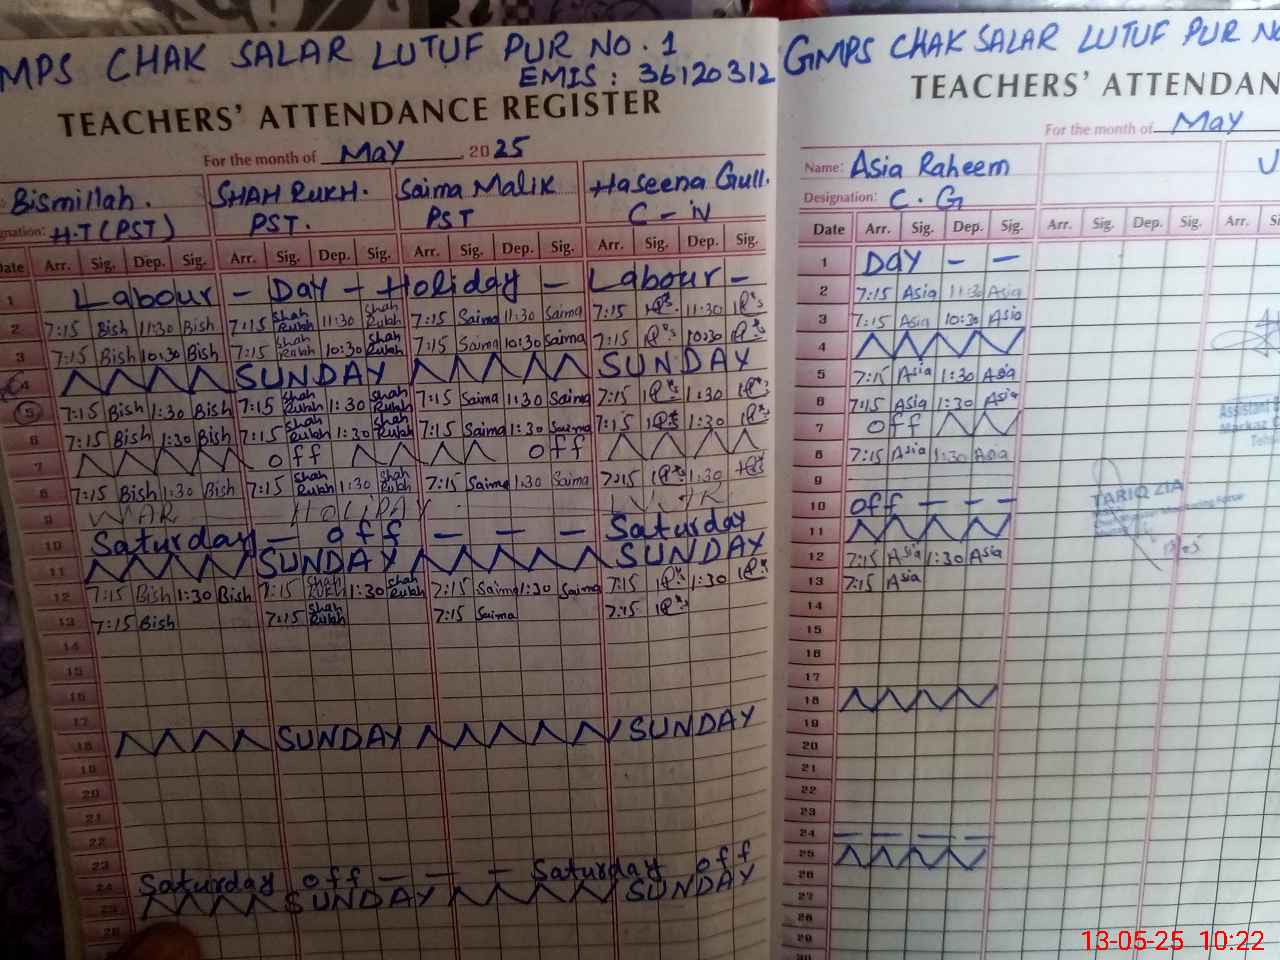 MPS CHAK SALAR LUTUF PUR NO. 1
EMIS: 36120312
TEACHERS' ATTENDANCE REGISTER
For the month of May 2025
Bismillah. SHAH RUKH. Saima Malik Haseena Gull.
gnation: H.T (PST) PST. PST C-IV
Date Arr. Sig. Dep. Sig. Arr. Sig. Dep. Sig. Arr. Sig. Dep. Sig. Arr. Sig. Dep. Sig.
1 Labour - Day - Holiday - Labour -
2 7:15 Bish 11:30 Bish 7:15 Shah Rukh 11:30 Shah Rukh 7:15 Saima 11:30 Saima 7:15 11:30
3 7:15 Bish 10:30 Bish 7:15 Shah Rukh 10:30 Shah Rukh 7:15 Saima 10:30 Saima 7:15 10:30
4 SUNDAY SUNDAY
5 7:15 Bish 1:30 Bish 7:15 Shah Rukh 1:30 Shah Rukh 7:15 Saima 1:30 Saima 7:15 1:30
6 7:15 Bish 1:30 Bish 7:15 Shah Rukh 1:30 Shah Rukh 7:15 Saima 1:30 Saima 7:15 1:30
7 off off
8 7:15 Bish 1:30 Bish 7:15 Shah Rukh 1:30 Shah Rukh 7:15 Saima 1:30 Saima 7:15 1:30
9 WAR HOLIDAY
10 Saturday - off - - - Saturday
11 SUNDAY SUNDAY
12 7:15 Bish 1:30 Bish 7:15 Shah Rukh 1:30 Shah Rukh 7:15 Saima 1:30 Saima 7:15 1:30
13 7:15 Bish 7:15 Shah Rukh 7:15 Saima 7:15
14
15
16
17
18 SUNDAY SUNDAY
19
20
21
22
23
24 Saturday off - - - Saturday off
25 SUNDAY SUNDAY
26
GMPS CHAK SALAR LUTUF PUR
TEACHERS' ATTENDAN
For the month of May
Name: Asia Raheem
Designation: C.G
Date Arr. Sig. Dep. Sig. Arr. Sig. Dep. Sig. Arr.
1 Day - -
2 7:15 Asia 11:30 Asia
3 7:15 Asia 10:30 Asia
4
5 7:15 Asia 1:30 Asia
6 7:15 Asia 1:30 Asia
7 off
8 7:15 Asia 1:30 Asia
9
10 off - - -
11
12 7:15 Asia 1:30 Asia
13 7:15 Asia
14
15
16
17
18
19
20
21
22
23
24 - - - -
25
26
27
28
29
30
Assistant
TARIQ ZIA
13-05-25 10:22